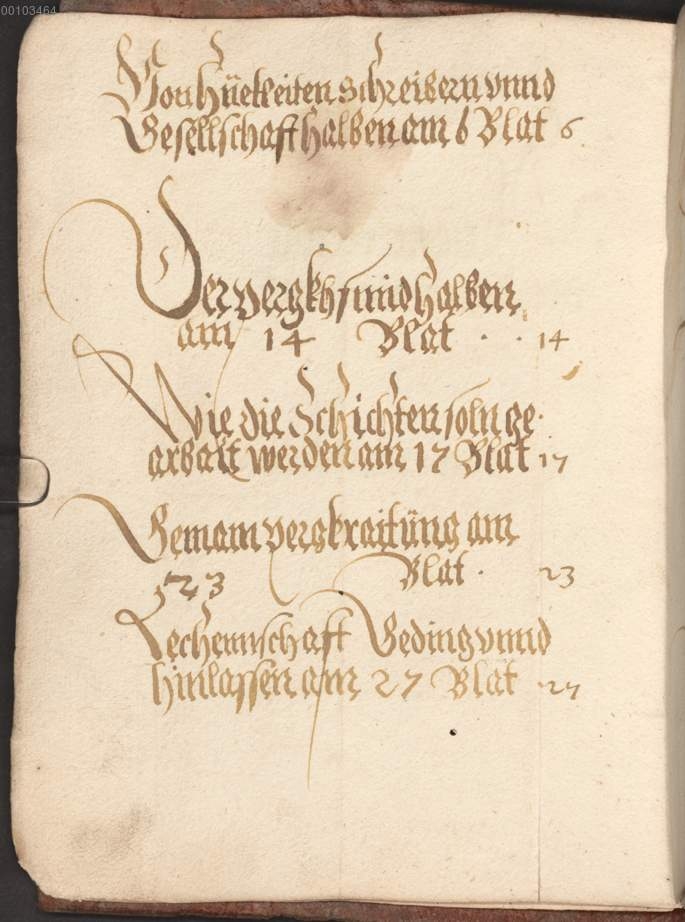 00103464
Von Hüetleiten schreibern vnnd
Gesellschaft halben am 6 Blat 6
Der pergkhs ... halben
am 14 Blat 14
Wie die Schichten soln ge
arbait werden am 17 Blat 17
Gemain pergkraitung am
23 Blat 23
Rechennschaft Geding vnnd
hinlassen am 27 Blat 27